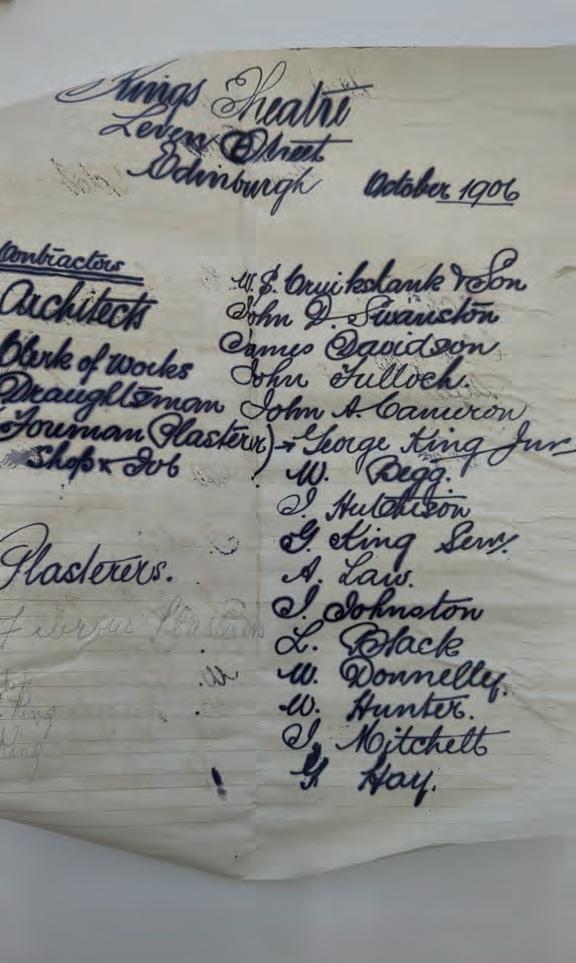 Kings Theatre
Leven Street
Edinburgh
October 1906
Contractors W. S. Cruikshank & Son
Architects John D. Swanston
James Davidson
Clerk of Works John Tulloch.
Draughtsman John A. Cameron
(Foreman Plasterer) → George King Junr
Shop & Job W. Begg.
J. Hutchison
G. King Senr.
Plasterers. A. Law.
J. Johnston
L. Black
W. Donnelly.
W. Hunter.
J. Mitchell
G Hay.